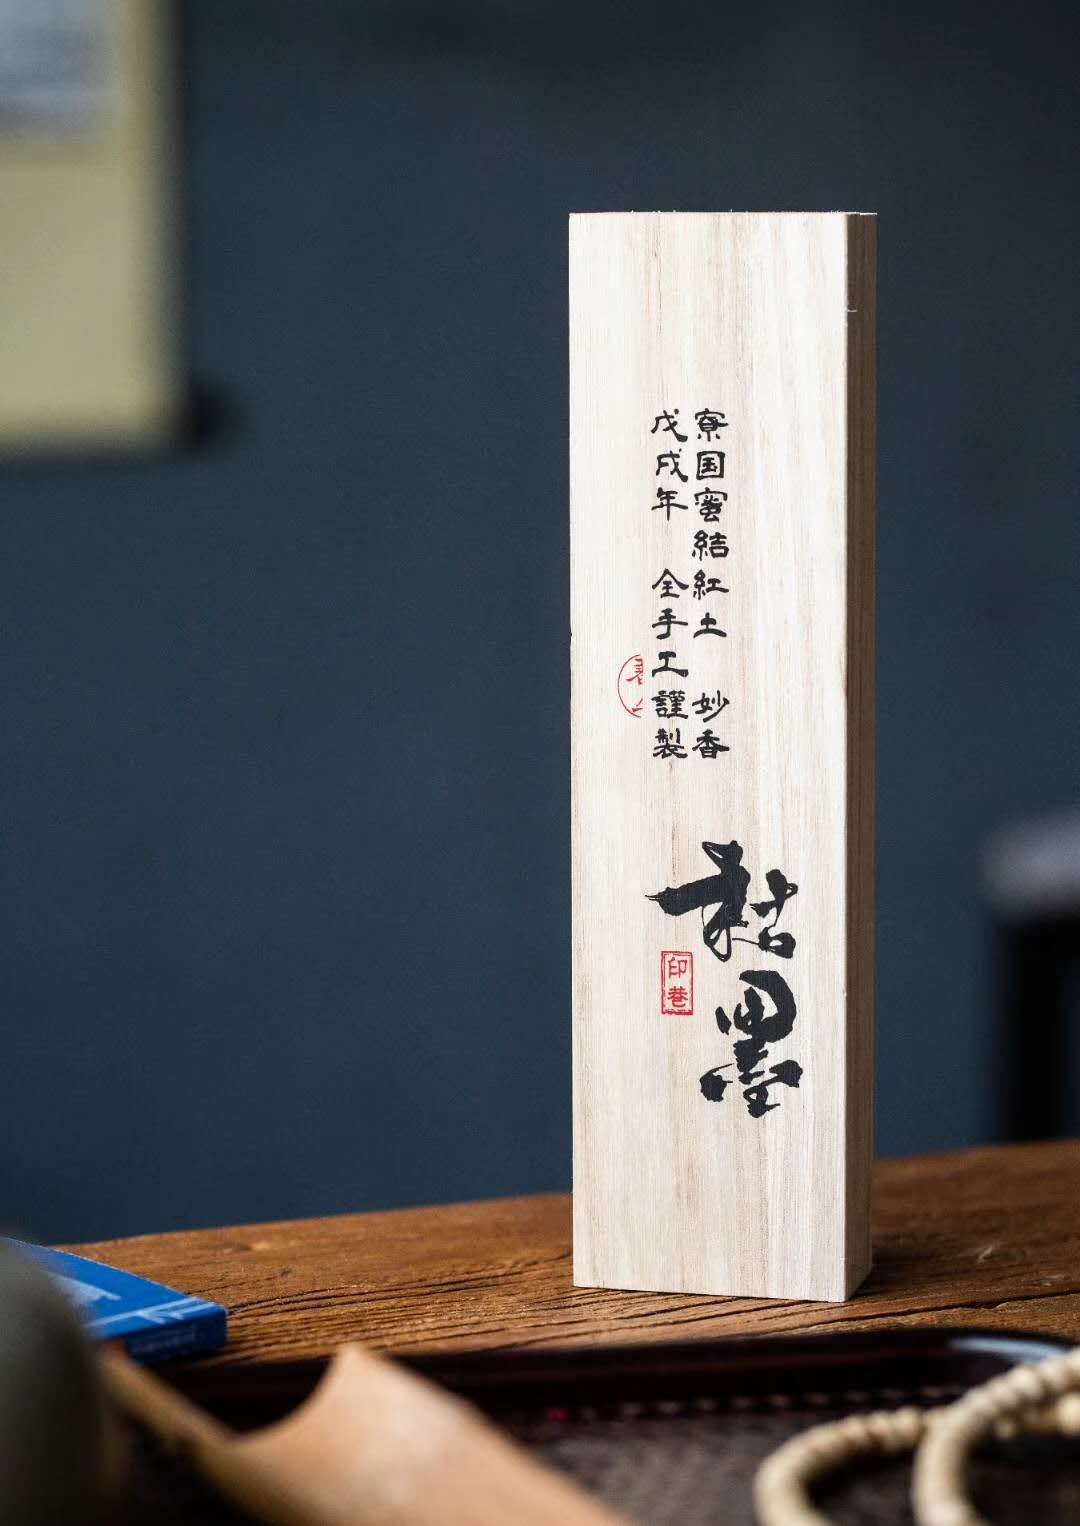 寮国蜜結紅土 妙香
戊戌年 全手工謹製
印巷